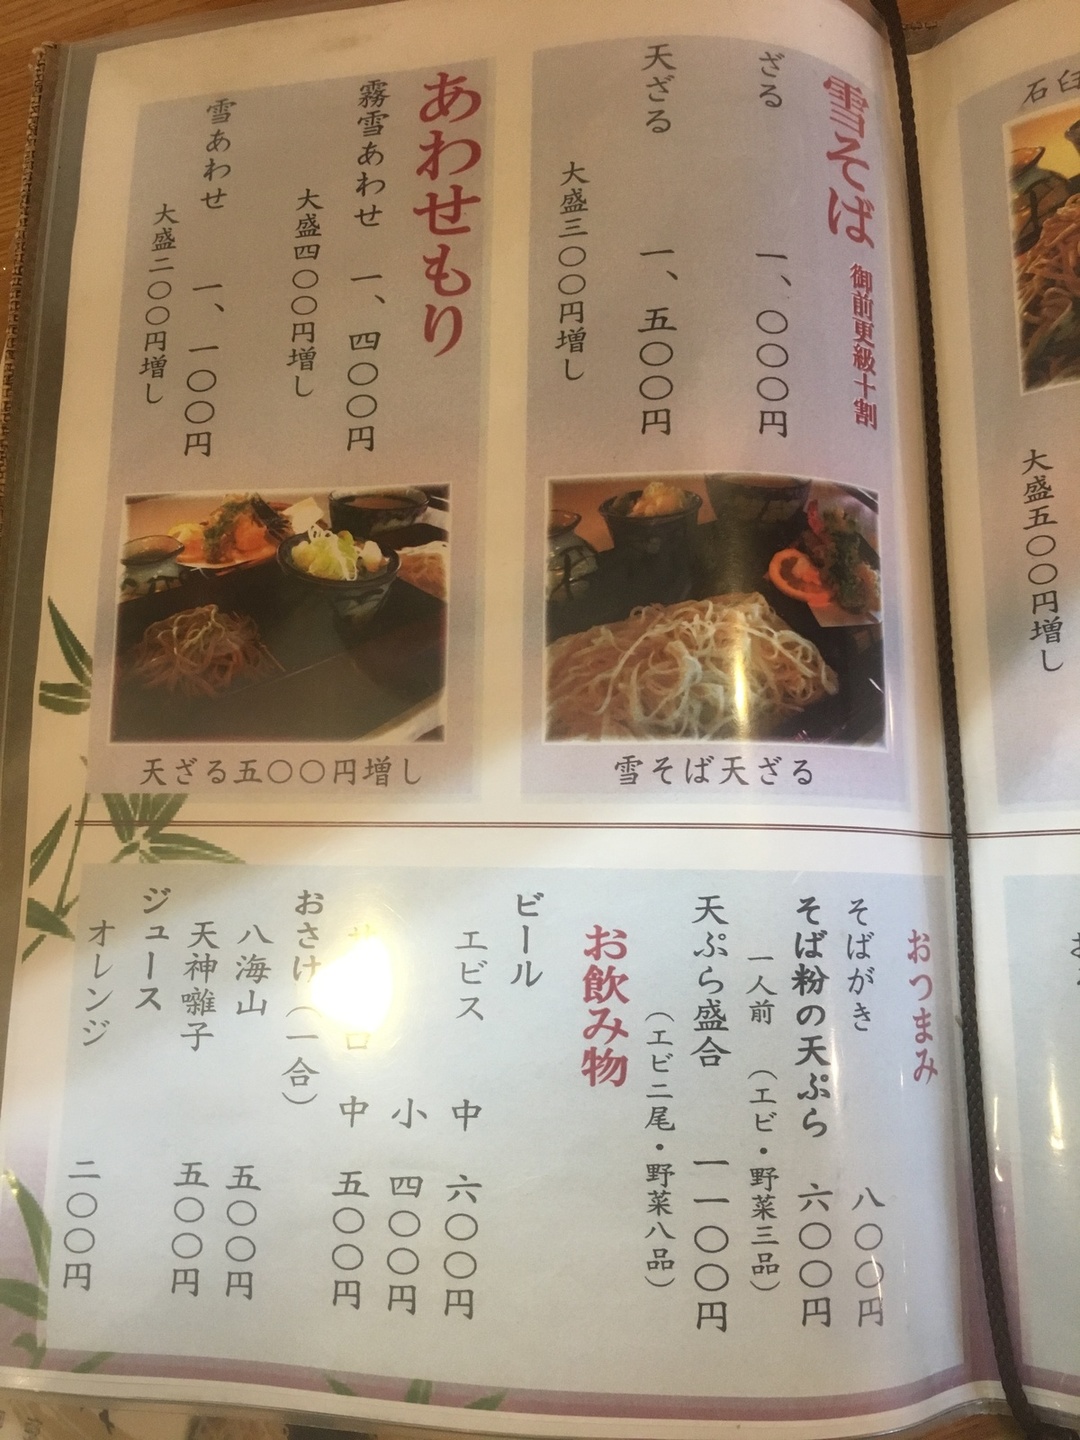 雪そば 御前更級十割
ざる 一、〇〇〇円
天ざる 一、五〇〇円
大盛三〇〇円増し
雪そば天ざる
あわせもり
霧雪あわせ 一、四〇〇円
大盛四〇〇円増し
雪あわせ 一、一〇〇円
大盛二〇〇円増し
天ざる五〇〇円増し
おつまみ
そばがき 八〇〇円
そば粉の天ぷら 六〇〇円
一人前 (エビ・野菜三品)
天ぷら盛合 一一〇〇円
(エビ二尾・野菜八品)
お飲み物
ビール
エビス 中 六〇〇円
小 四〇〇円
中 五〇〇円
おさけ(一合)
八海山 五〇〇円
天神囃子 五〇〇円
ジュース
オレンジ 二〇〇円
石臼
大盛五〇〇円増し